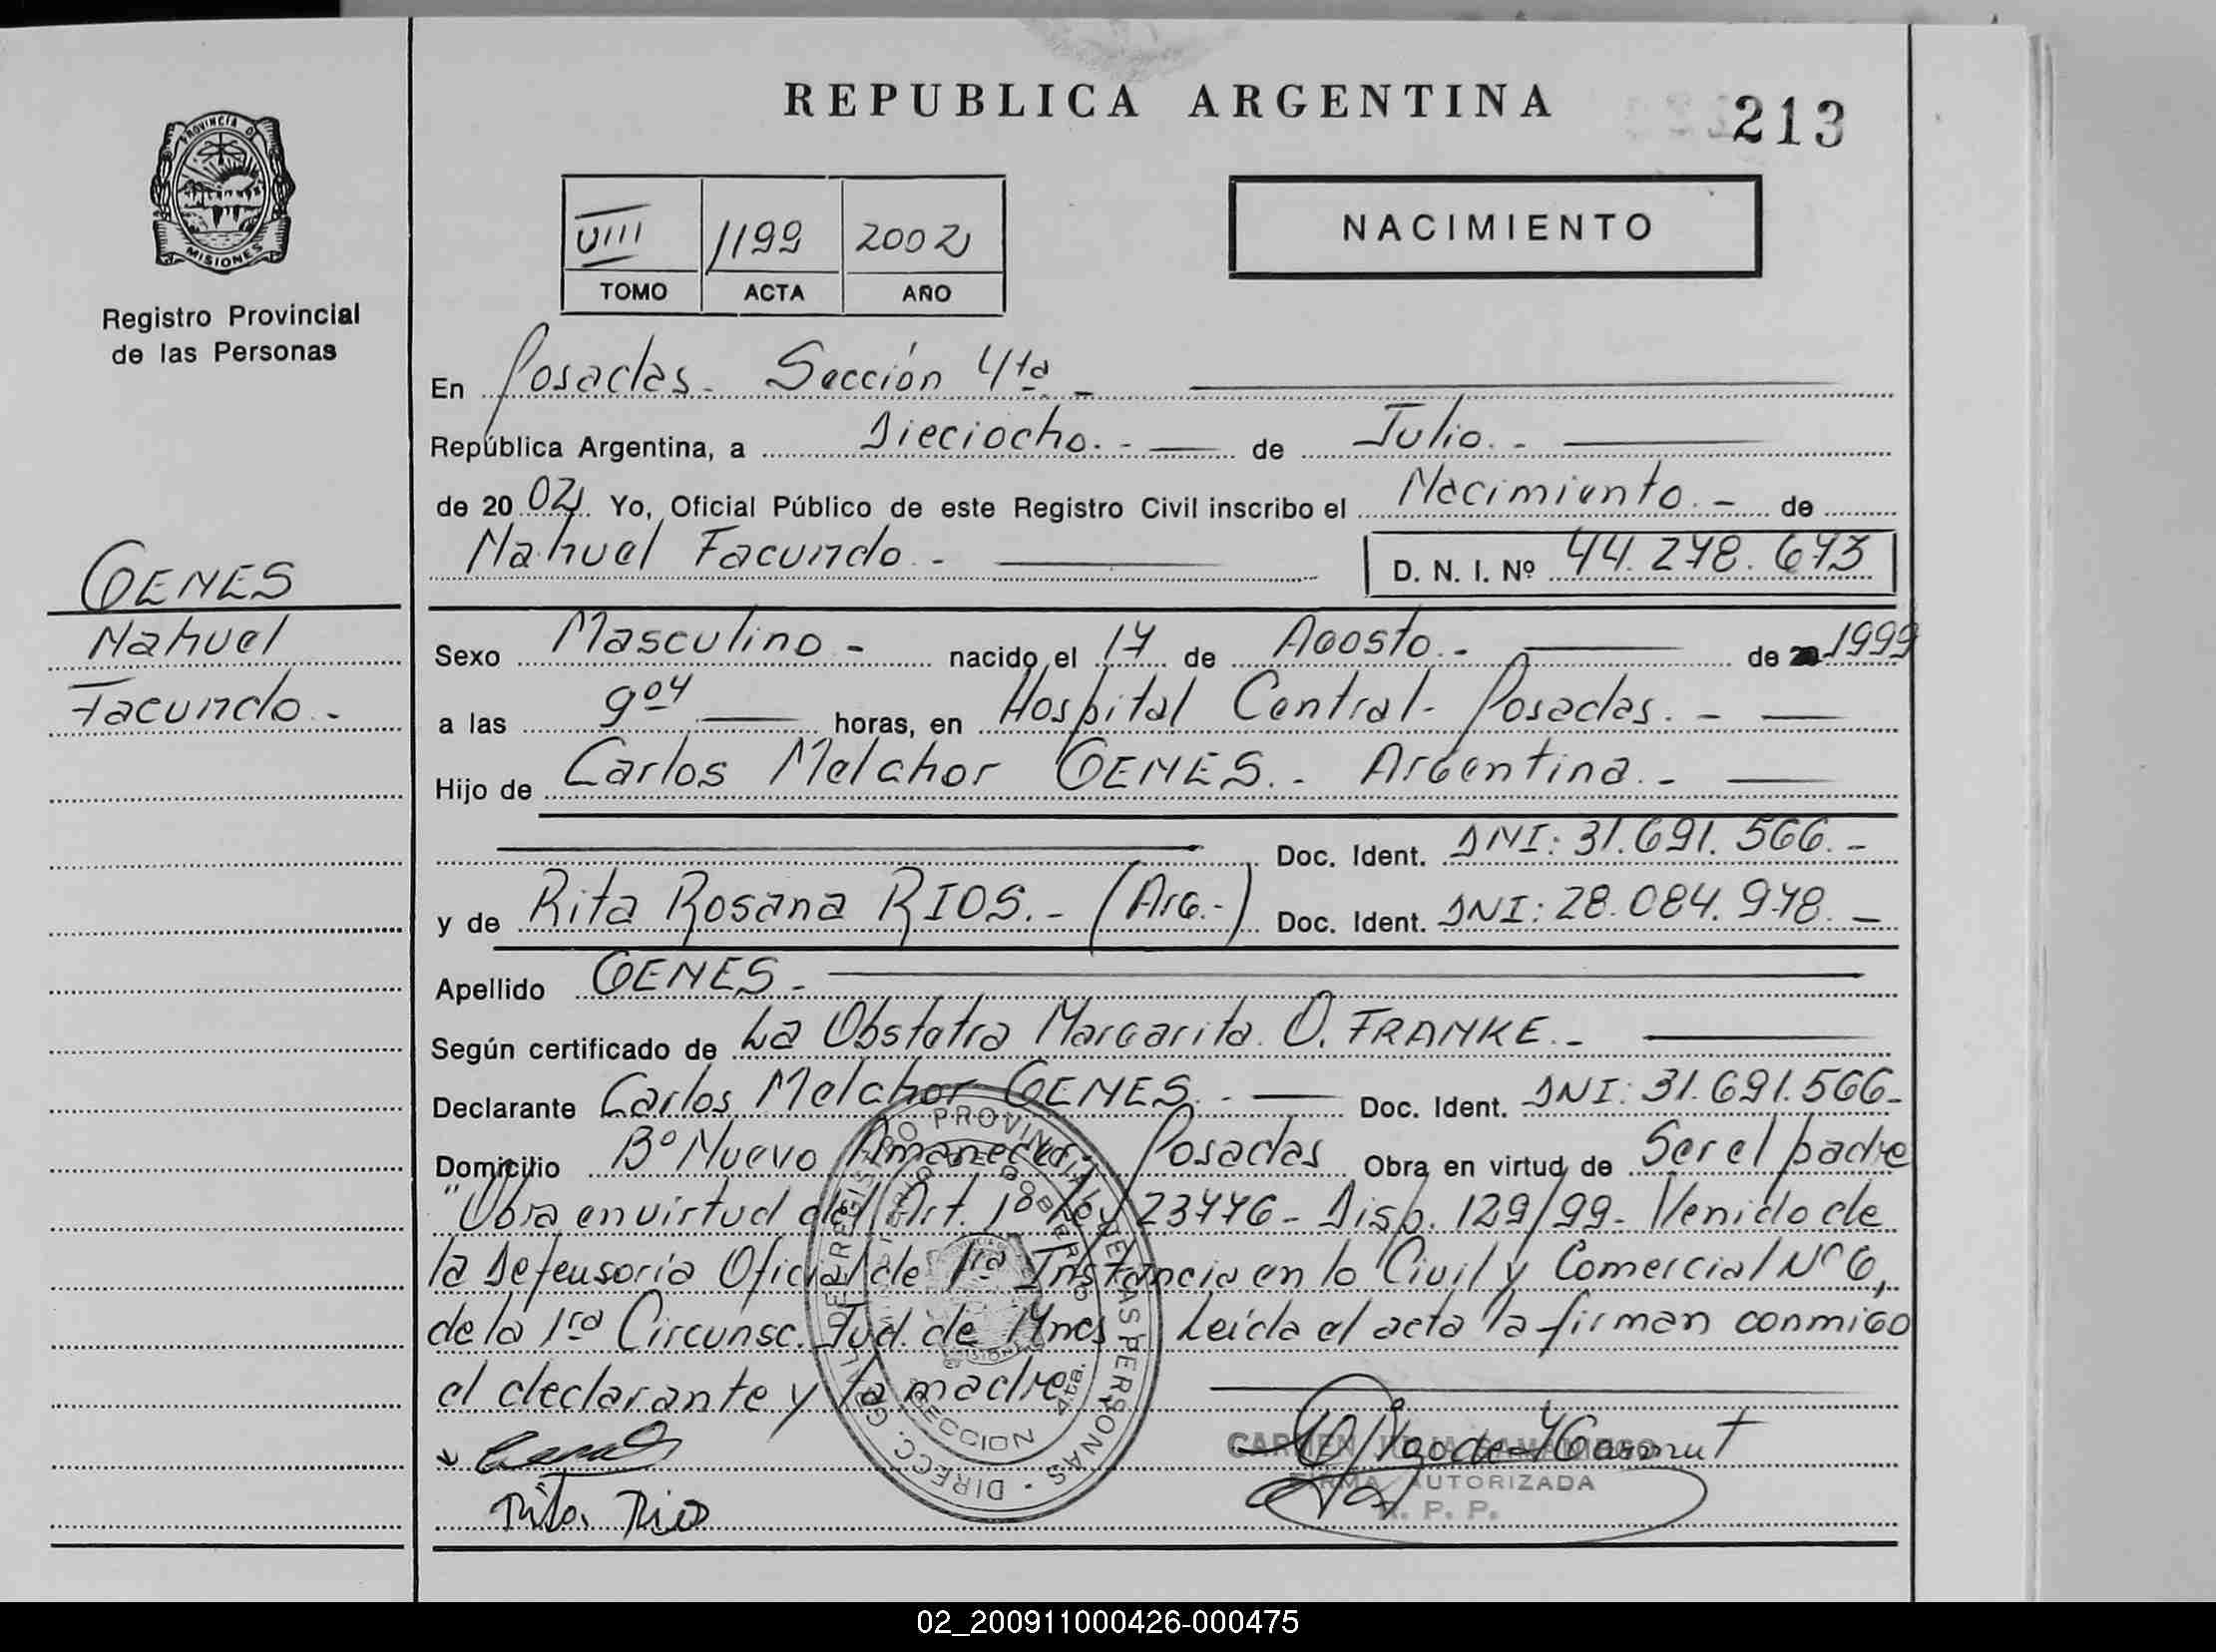 REPUBLICA ARGENTINA
213
PROVINCIA D
MISIONES
Registro Provincial
de las Personas
VIII 1199 2002
TOMO ACTA AÑO
NACIMIENTO
En Posadas.- Sección 4ta.-
República Argentina, a Dieciocho.- de Julio.-
de 20 02 Yo, Oficial Público de este Registro Civil inscribo el Nacimiento.- de
Nahuel Facundo.- D. N. I. Nº 44.278.673
GENES
Nahuel
Facundo.-
Sexo Masculino.- nacido el 17 de Agosto.- de 1999
a las 9º4 horas, en Hospital Central- Posadas.-
Hijo de Carlos Melchor GENES.- Argentina.-
Doc. Ident. DNI: 31.691.566.-
y de Rita Rosana RIOS.- (Arg.-) Doc. Ident. DNI: 28.084.978.-
Apellido GENES.-
Según certificado de La Obstetra Margarita O. FRANKE.-
Declarante Carlos Melchor GENES.- Doc. Ident. DNI: 31.691.566-
Domicilio Bº Nuevo Amanecer- Posadas Obra en virtud de Ser el padre
"Obra en virtud del Art. 1º Ley 23776- Disp. 129/99- Venido de
la Defensoría Oficial de 1ra Instancia en lo Civil y Comercial Nº 6,
de la 1ra Circunsc. Jud. de Mnes Leída el acta la firman conmigo
el declarante y la madre
DIRECC. GRAL. DEL REGISTRO PROVINCIAL DE LAS PERSONAS
MINISTERIO DE GOBIERNO
SECCION 4ta.
Rita Rios
CARMEN JULIA
FIRMA AUTORIZADA
R. P. P.
02_200911000426-000475